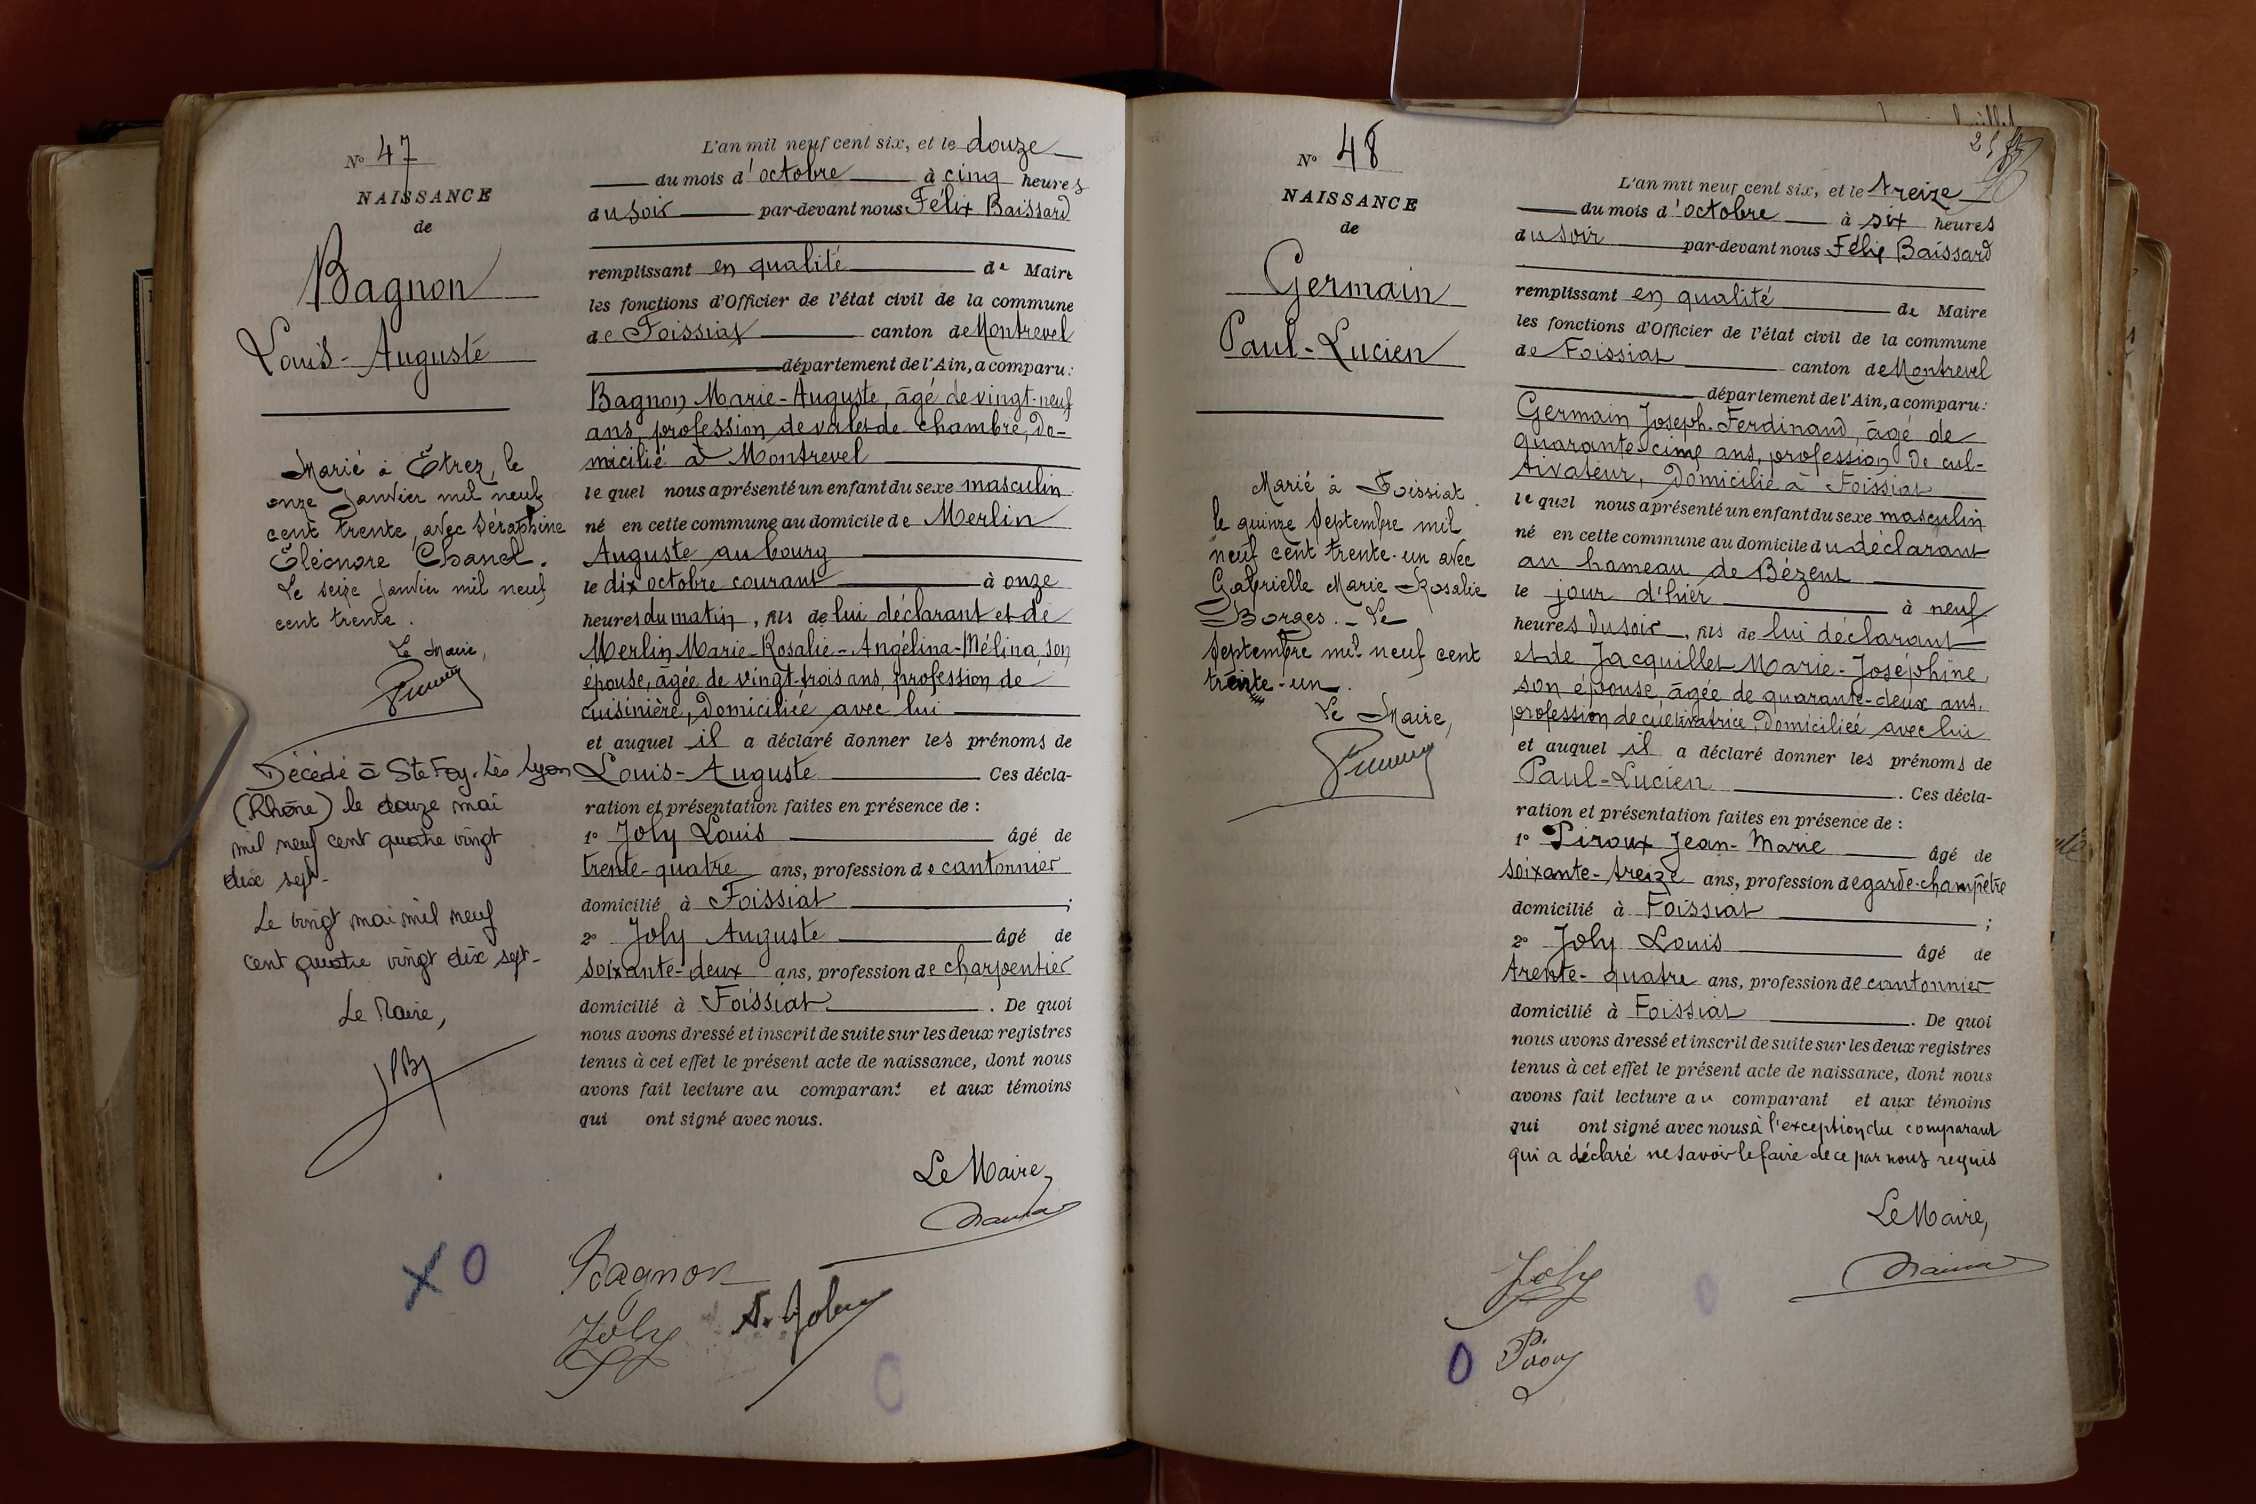 N° 47
NAISSANCE
de
Bagnon
Louis-Auguste
Marié à Étrez, le
onze Janvier mil neuf
cent trente, avec Séraphine
Éléonore Chanel.
Le seize Janvier mil neuf
cent trente.
Le Maire,
Décédé à Ste Foy-Lès Lyon
(Rhône) le douze mai
mil neuf cent quatre vingt
dix sept-
Le vingt mai mil neuf
cent quatre vingt dix sept-
Le Maire,
L'an mil neuf cent six, et le douze
du mois d'octobre à cinq heures
du soir par-devant nous Félix Baissard
remplissant en qualité de Maire
les fonctions d'Officier de l'état civil de la commune
de Foissiat canton de Montrevel
département de l'Ain, a comparu:
Bagnon Marie-Auguste, âgé de vingt-neuf
ans, profession de valet de chambre, do-
micilié à Montrevel
lequel nous a présenté un enfant du sexe masculin
né en cette commune au domicile de Merlin
Auguste au bourg
le dix octobre courant à onze
heures du matin, fils de lui déclarant et de
Merlin Marie-Rosalie-Angélina-Mélina, son
épouse, âgée de vingt-trois ans, profession de
cuisinière, domiciliée avec lui
et auquel il a déclaré donner les prénoms de
Louis-Auguste Ces décla-
ration et présentation faites en présence de :
1° Joly Louis âgé de
trente-quatre ans, profession de cantonnier
domicilié à Foissiat ;
2° Joly Auguste âgé de
soixante-deux ans, profession de charpentier
domicilié à Foissiat . De quoi
nous avons dressé et inscrit de suite sur les deux registres
tenus à cet effet le présent acte de naissance, dont nous
avons fait lecture au comparant et aux témoins
qui ont signé avec nous.
Le Maire,
Bagnon
Joly A. Joly
X 0
N° 48
NAISSANCE
de
Germain
Paul-Lucien
Marié à Foissiat
le quinze Septembre mil
neuf cent trente-un avec
Gabrielle Marie Rosalie
Borges.- Le
Septembre mil neuf cent
trente-un.
Le Maire,
L'an mil neuf cent six, et le treize
du mois d'octobre à six heures
du soir par-devant nous Félix Baissard
remplissant en qualité de Maire
les fonctions d'Officier de l'état civil de la commune
de Foissiat canton de Montrevel
département de l'Ain, a comparu:
Germain Joseph-Ferdinand, âgé de
quarante-cinq ans, profession de cul-
tivateur, domicilié à Foissiat
lequel nous a présenté un enfant du sexe masculin
né en cette commune au domicile du déclarant
au hameau de Bézent
le jour d'hier à neuf
heures du soir, fils de lui déclarant
et de Jacquillet Marie-Joséphine,
son épouse, âgée de quarante-deux ans,
profession de cultivatrice, domiciliée avec lui
et auquel il a déclaré donner les prénoms de
Paul-Lucien . Ces décla-
ration et présentation faites en présence de :
1° Piroux Jean-Marie âgé de
soixante-treize ans, profession de garde-champêtre
domicilié à Foissiat ;
2° Joly Louis âgé de
trente-quatre ans, profession de cantonnier
domicilié à Foissiat . De quoi
nous avons dressé et inscrit de suite sur les deux registres
tenus à cet effet le présent acte de naissance, dont nous
avons fait lecture au comparant et aux témoins
qui ont signé avec nous à l'exception du comparant
qui a déclaré ne savoir le faire de ce par nous requis
Le Maire,
Joly
0